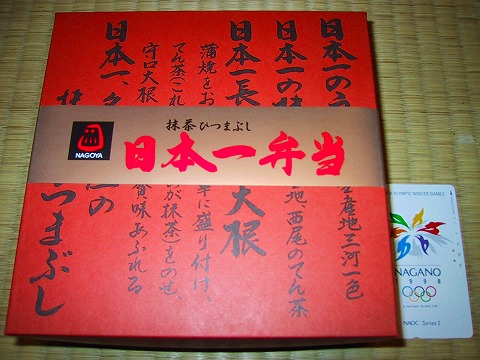 日本一の
日本一の
日本一長
蒲焼をお
てん茶(これ
守口大根
日本一、
抹茶ひつまぶし
日本一弁当
NAGOYA
産地三河一色
地、西尾のてん茶
大根
に盛り付け、
が抹茶)をのせ
賞味あふれる
の
つまぶし
OLYMPIC WINTER GAMES
NAGANO
1998
NAOC Series 3